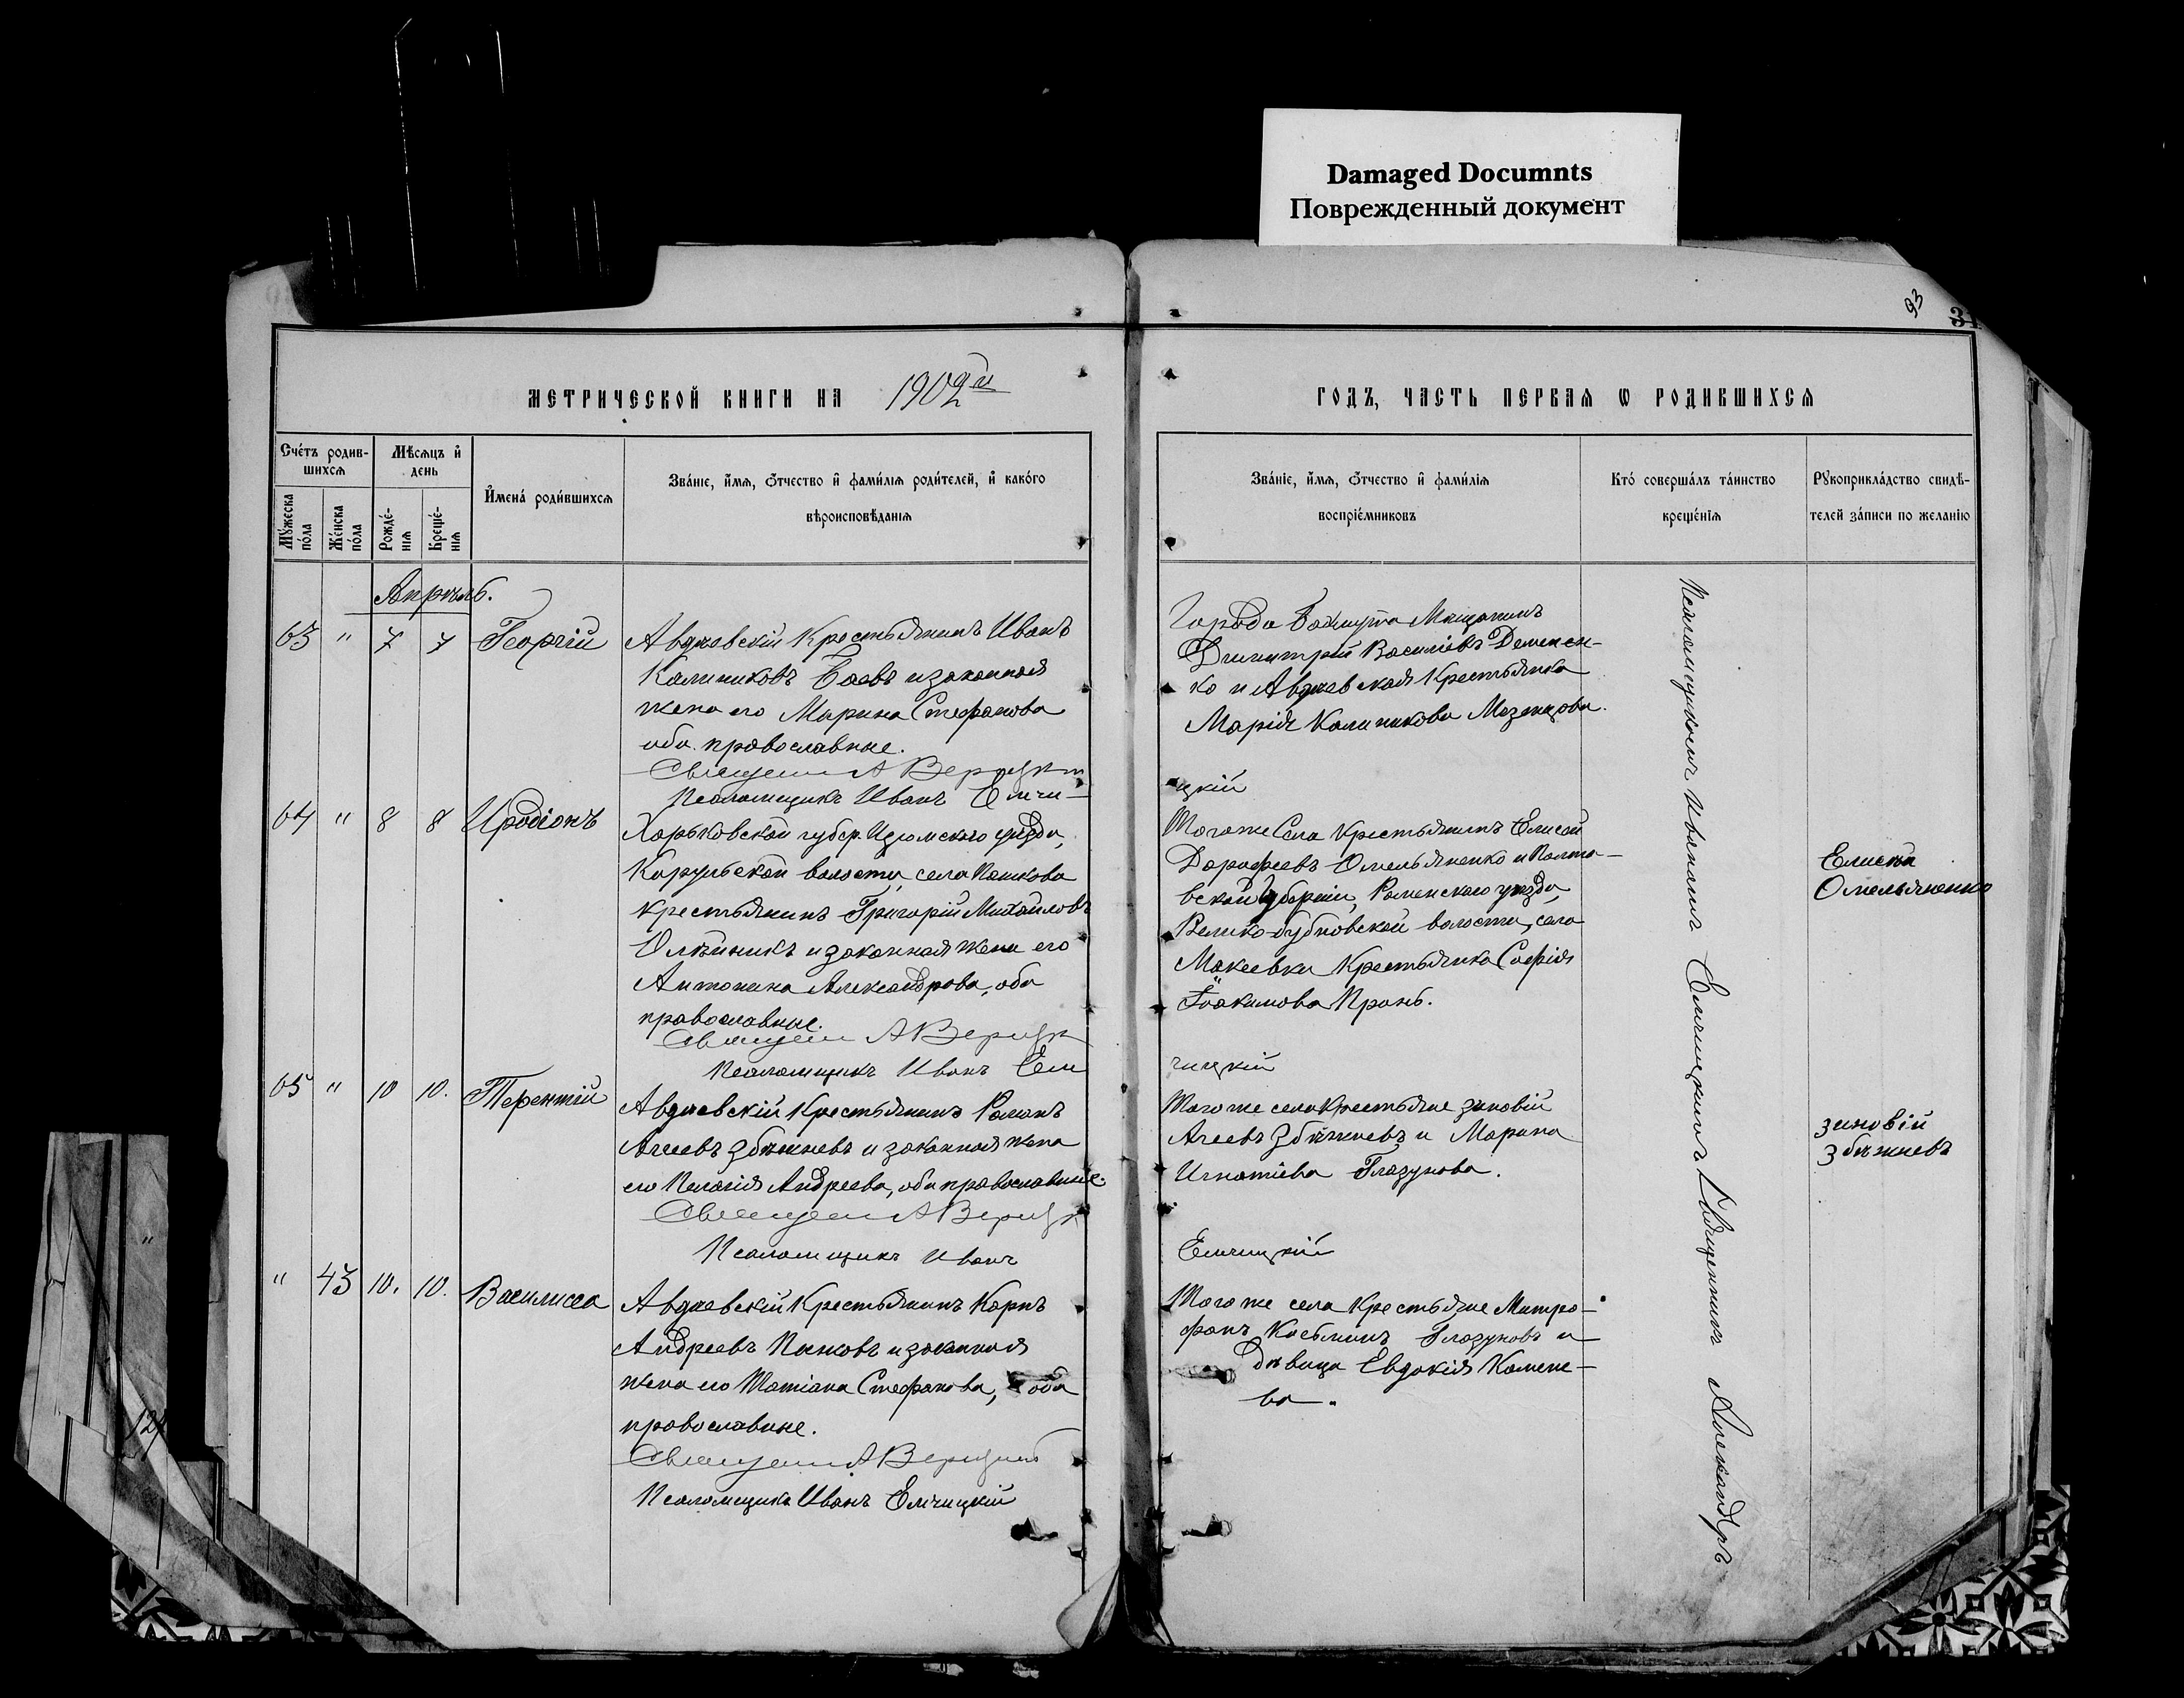 Damaged Documnts
Поврежденный документ
93
31
МЕТРИЧЕСКОЙ КНИГИ НА 1902й
ГОДЪ, ЧАСТЬ ПЕРВАѦ Ѡ РОДИВШИХСѦ
Счéтъ родив-
шихсѧ
Мѣсѧцъ и҆
день
Мꙋ́жеска
пóла
Жéнска
пóла
Рождé-
нїѧ
Крещé-
нїѧ
И҆менá роди́вшихсѧ
Звáнїе, и҆́мѧ, ѻ҆́тчество и҆ фами́лїѧ роди́телей, и҆ какóго
вѣроисповѣ́данїѧ
Звáнїе, и҆́мѧ, ѻ҆́тчество и҆ фами́лїѧ
воспрїéмниковъ
Ктó совершáлъ тáинство
крещéнїѧ
Рꙋкоприклáдство свидѣ́-
телей зáписи по желáнїю
Апрѣль.
63 " 7 7 Георгій
Авдѣевскій Крестьянинъ Иванъ
Калиниковъ Баевъ и законная
жена его Марина Стефанова
оба православные.
Священ А Верицкій
Псаломщикъ Иванъ Емчи-
Города Бахмута Мещанинъ
Димитрій Василіевъ Деменен-
ко и Авдѣевская Крестьянка
Марія Калиникова Мезенцова.
цкій
64 " 8 8 Иродіонъ
Харьковской губер. Изюмскаго уѣзда,
волости, села
крестьянинъ Григорій Михайловъ
Олѣйникъ и законная жена его
Антонина Александрова, оба
православные.
Священ А Верицк
Псаломщикъ Иванъ Ем
Тогоже Села Крестьянинъ Елисей
Дорофеевъ Омельяненко и Полта-
вской Губерніи, Роменскаго уѣзда,
Велико-бубновской волости, села
Макеевки Крестьянка Софія
Іоакимова Пронь.
чицкій
Елисѣй
Омельяненко
65 " 10 10. Терентій
Авдѣевскій Крестьянинъ Романъ
Агеевъ Збѣжневъ и законная жена
его Пелагія Андреева, оба православные.
Священ А Верицк
Псаломщикъ Иванъ
Тогоже села Крестьяне Зиновій
Агеевъ Збѣжневъ и Марина
Игнатіева Глазунова.
Емчицкій
Зиновій
Збѣжневъ
" 43 10. 10. Василисса
Авдѣевскій Крестьянинъ Карпъ
Андреевъ Пѣнковъ и законная
жена его Татіана Стефанова, оба
православные.
Священ А Верицкій
Псаломщикъ Иванъ Емчицкій
Того же села Крестьяне Митро-
фанъ Косьминъ Глазуновъ и
Дѣвица Евдокія Камене-
ва.
Псаломщикомъ Иваномъ Емчицкимъ Священникъ Александръ